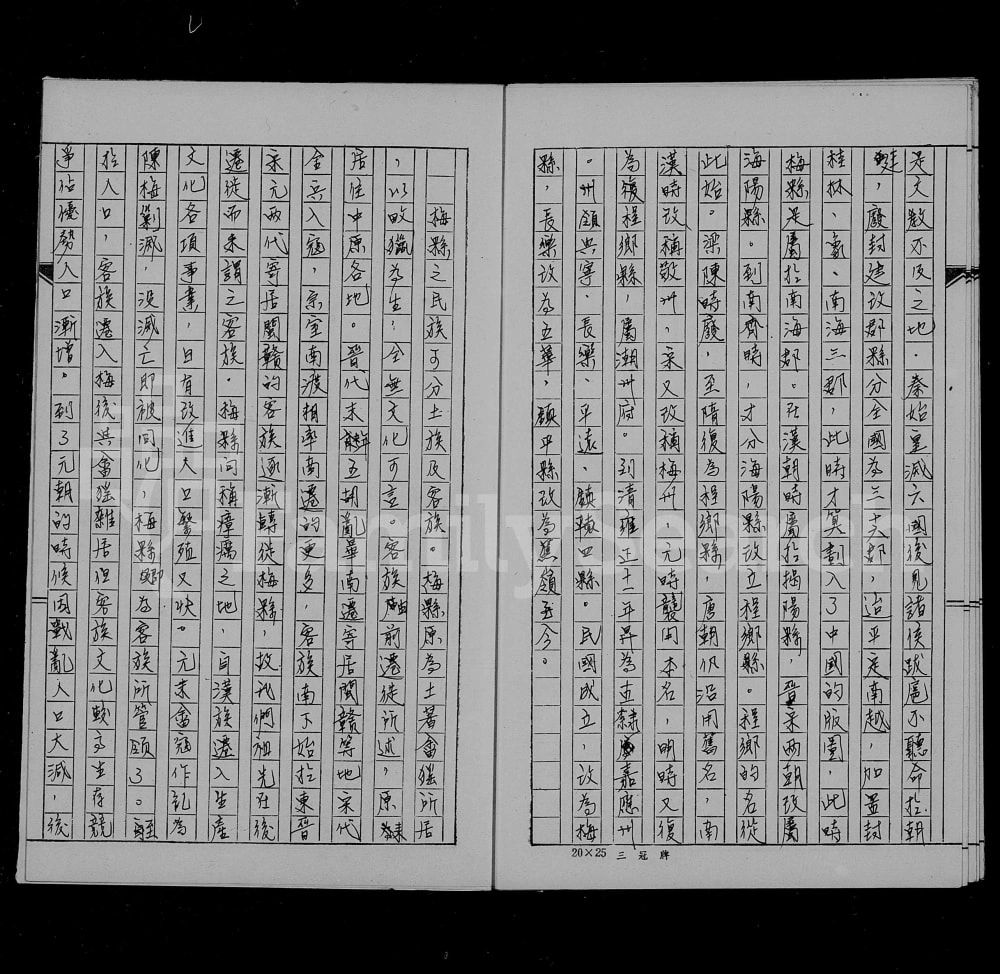 是文教不及之地。秦始皇滅六國後見諸侯跋扈不聽命於朝
廷，廢封建改郡縣分全國為三十六郡，迨平定南越，加置封
桂林、象、南海三郡，此時才算劃入了中國的版圖，此時
梅縣是屬於南海郡。在漢朝時屬於揭陽縣，晉宋兩朝改屬
海陽縣。到南齊時，才分海陽縣改立程鄉縣。程鄉的名從
此始。梁陳時廢，至隋復為程鄉縣，唐朝仍沿用舊名，南
漢時改稱敬州，宋又改稱梅州，元時襲用本名，明時又復
為復程鄉縣，屬潮州府。到清雍正十一年昇為直隸嘉應州
。州領興寧、長樂、平遠、鎮平四縣。民國成立，改為梅
縣，長樂改為五華，鎮平縣改為蕉嶺至今。
20×25 三冠牌
梅縣之民族可分土族及客族。梅縣原為土著畬猺所居
，以畋獵為生，全無文化可言。客族由前遷徙所述，原
居住中原各地。晉代末五胡亂華南遷寄居閩贛等地宋代
金兵入寇，宗室南渡相率南遷的更多，客族南下始於東晉
宋元兩代寄居閩贛的客族逐漸轉徙梅縣，故我們祖先在後
遷徙而來謂之客族。梅縣向稱瘴癘之地，自漢族遷入生產
文化各項事業，日有改進人口繁殖又快。元末畬寇作亂為
陳梅剿滅，沒滅亡即被同化，梅縣鄉為客族所管領了。經
於人口，客族遷入梅後與畬猺雜居但客族文化較高生存競
爭佔優勢人口漸增。到了元朝的時候因戰亂人口大減，後
FamilySearch